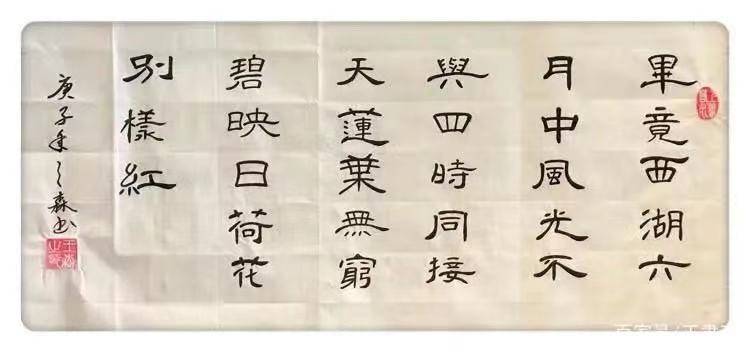 畢竟西湖六
月中風光不
與四時同接
天蓮葉無窮
碧映日荷花
別樣紅
庚子年之森书